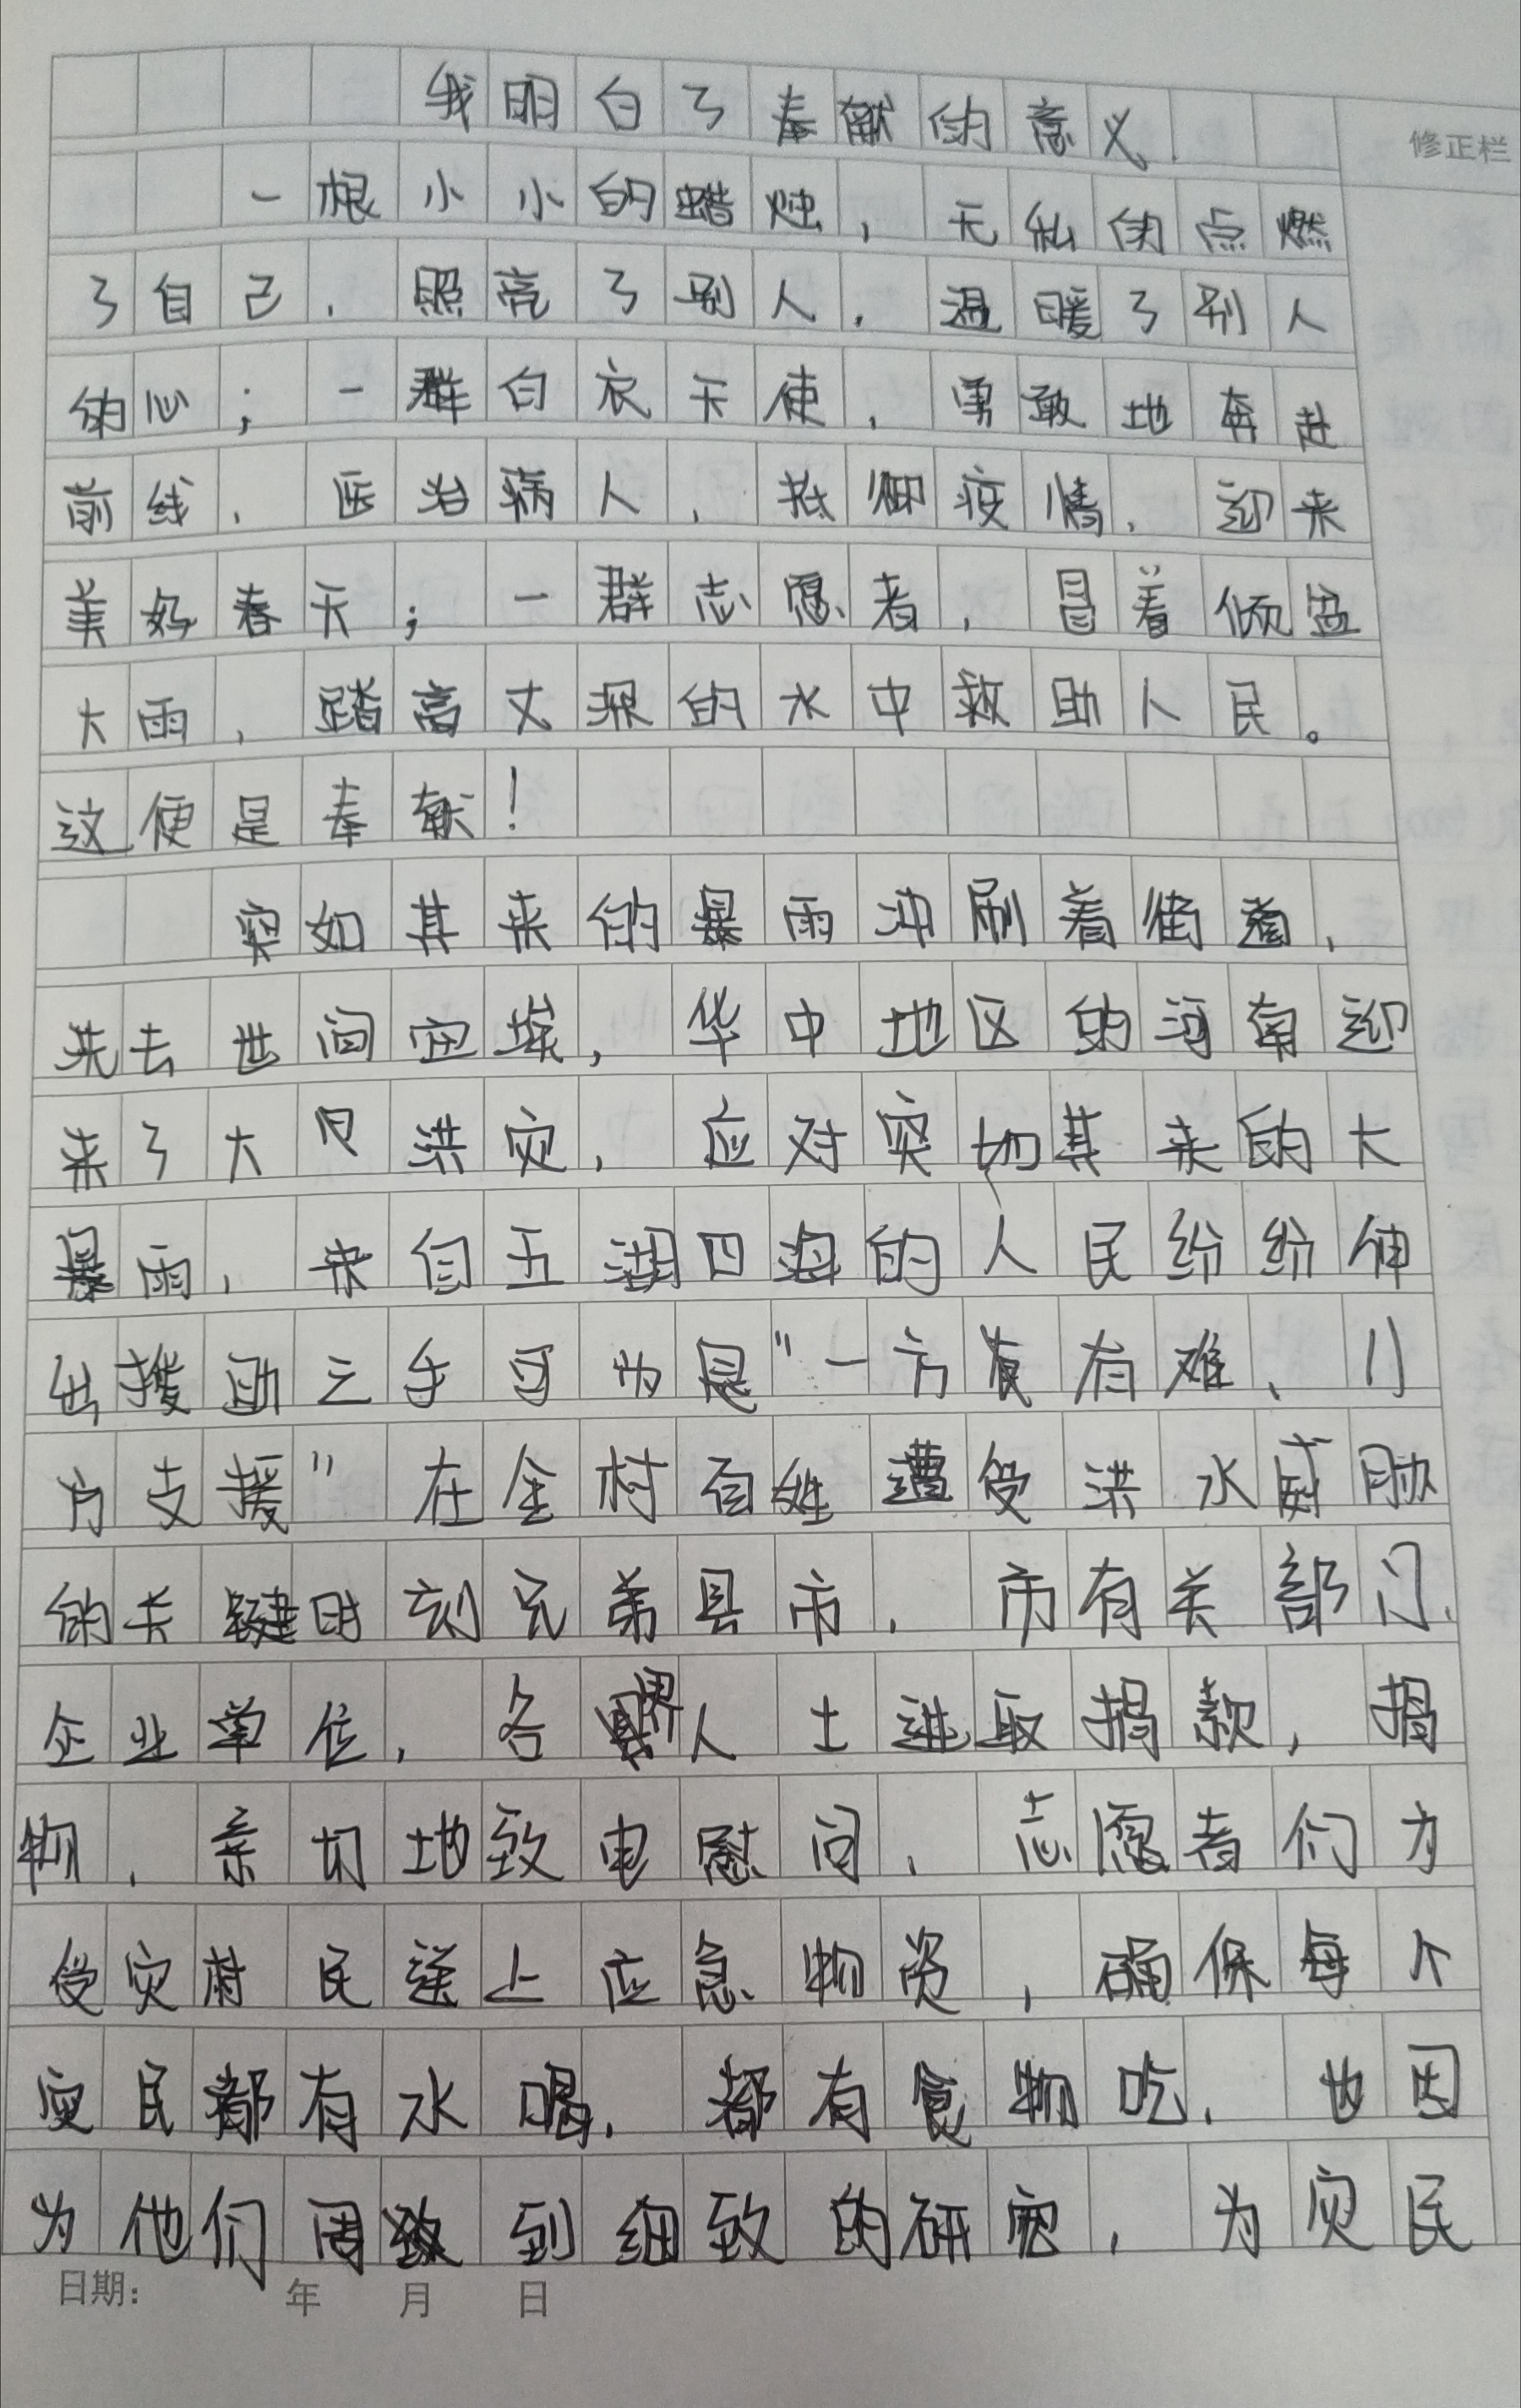 我明白了奉献的意义
修正栏
一根小小的蜡烛，无私的点燃
了自己，照亮了别人，温暖了别人
的心；一群白衣天使，勇敢地奔赴
前线，医治病人，抵御疫情，迎来
美好春天；一群志愿者，冒着倾盆
大雨，踏高丈深的水中救助人民。
这便是奉献！
突如其来的暴雨冲刷着街道，
洗去世间尘埃，华中地区的河南迎
来了大洪灾，应对突如其来的大
暴雨，来自五湖四海的人民纷纷伸
出援助之手可为是"一方有难、八
方支援"在全村百姓遭受洪水威胁
的关键时刻兄弟县市，市有关部门、
企业单位，各界人士进取捐款，捐
物，亲切地致电慰问，志愿者们为
受灾村民送上应急物资，确保每个
灾民都有水喝，都有食物吃，也因
为他们周到细致的研究，为灾民
日期： 年 月 日